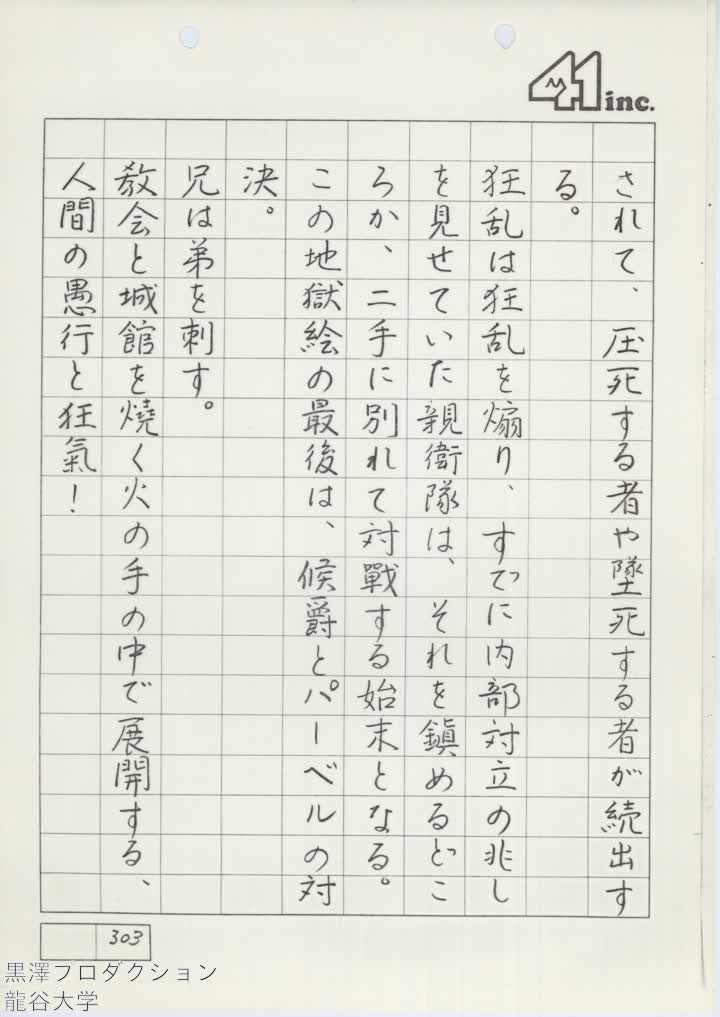 41 inc.
されて、圧死する者や墜死する者が続出す
る。
狂乱は狂乱を煽り、すでに内部対立の兆し
を見せていた親衛隊は、それを鎮めるどこ
ろか、二手に別れて対戰する始末となる。
この地獄絵の最後は、候爵とパーベルの対
決。
兄は弟を刺す。
教会と城館を燒く火の手の中で展開する、
人間の愚行と狂氣!
303
黒澤プロダクション
龍谷大学